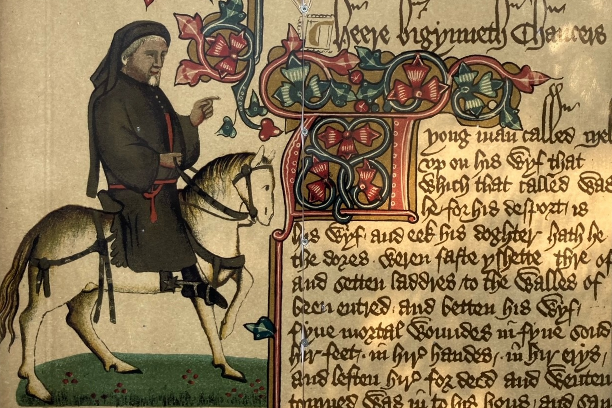 Heere bigynneth Chaucers
yong man called Mel
vp on his wyf that
which that called was
he for his desport is
his wyf and eek his doghter hath he
the dores weren faste yshette thre of
and setten laddres to the walles of
been entred and betten his wyf
fyue mortal woundes in fyue sond
hir feet in hir handes in hir erys
and leften hir for deed and wenten
tourned was in to his hous and sau